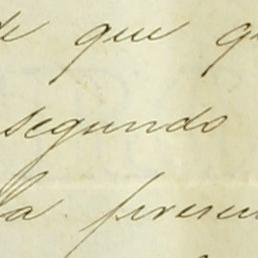 de que q
segundo
la presen